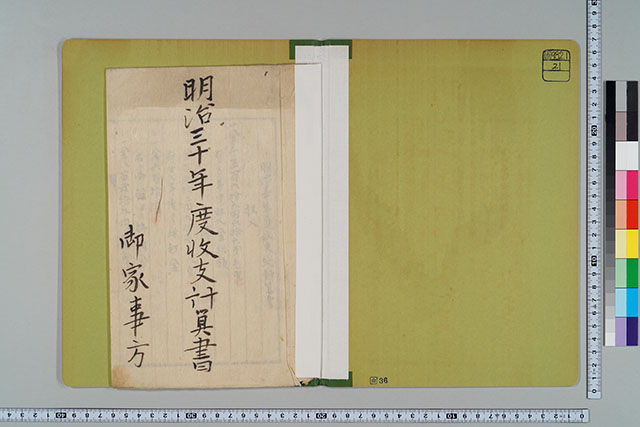 明治三十年度收支計算書
御家事方
21
36